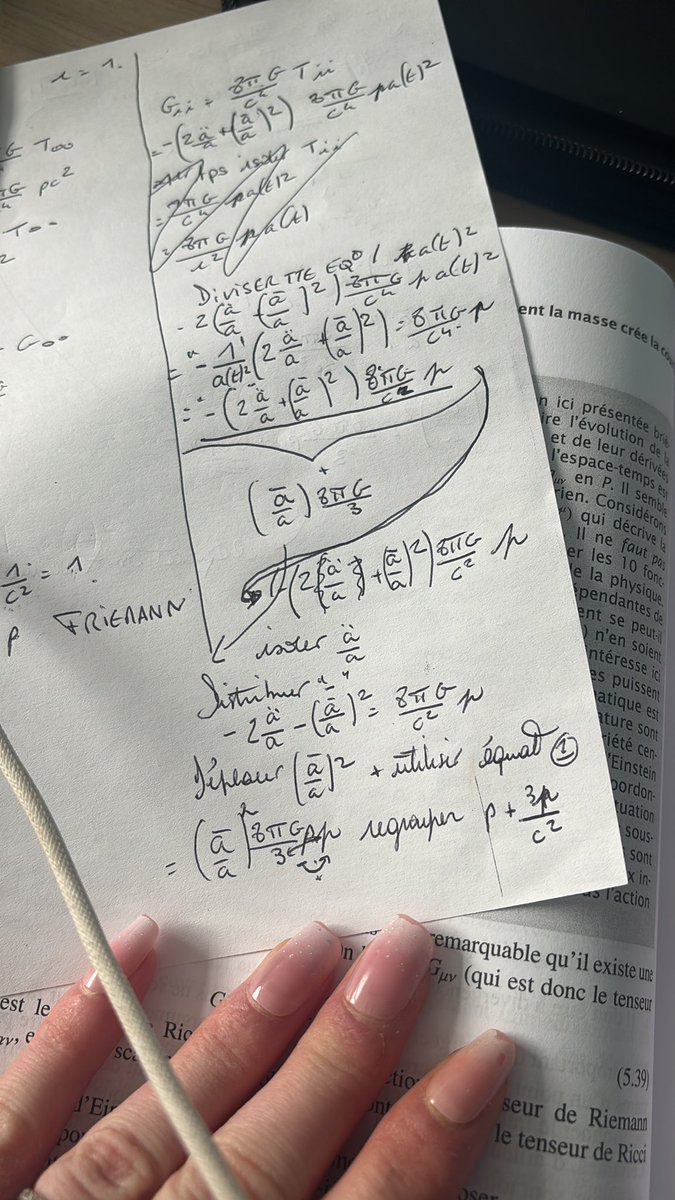 r = 1.
G T₀₀
G ρc²
T₀₀
G₀₀
1/c² = 1
ρ FRIEMANN
Gᵢᵢ = 8πG/c⁴ Tᵢᵢ
= -(2ä/a + (ȧ/a)²) 8πG/c⁴ pa(t)²
isoler Tᵢᵢ
= 8πG/c⁴ pa(t)²
= 8πG/c² pa(t)
DIVISER TTE EQ° / a(t)²
- 2(ä/a + (ȧ/a)²) 8πG/c⁴ p a(t)²
= - 1/a(t)² (2ä/a + (ȧ/a)²) = 8πG/c⁴ p
= -(2ä/a + (ȧ/a)²) 8πG/c² p
(ȧ/a) 8πG/3
(2(ä/a) + (ȧ/a)²) 8πG/c² p
isoler ä/a
Distribuer "-"
- 2ä/a - (ȧ/a)² = 8πG/c² p
Déplacer (ȧ/a)² + utiliser équat ①
= (ȧ/a)² 8πG/3 ρ regrouper ρ + 3p/c²
ent la masse crée la cou
n ici présentée briè
ire l'évolution de la
et de leur dérivées
l'espace-temps est
μν en P. Il semble
rien. Considérons
) qui décrive la
Il ne faut pas
er les 10 fonc-
e la physique.
épendantes de
ent se peut-il
) n'en soient
intéresse ici
es puissent
atique est
ature sont
riété cen-
d'Einstein
pordon-
tuation
sous-
sont
x in-
l'action
remarquable qu'il existe une
Gμν (qui est donc le tenseur
est le
Ric
(5.39)
seur de Riemann
d'Ei
le tenseur de Ricci
oser